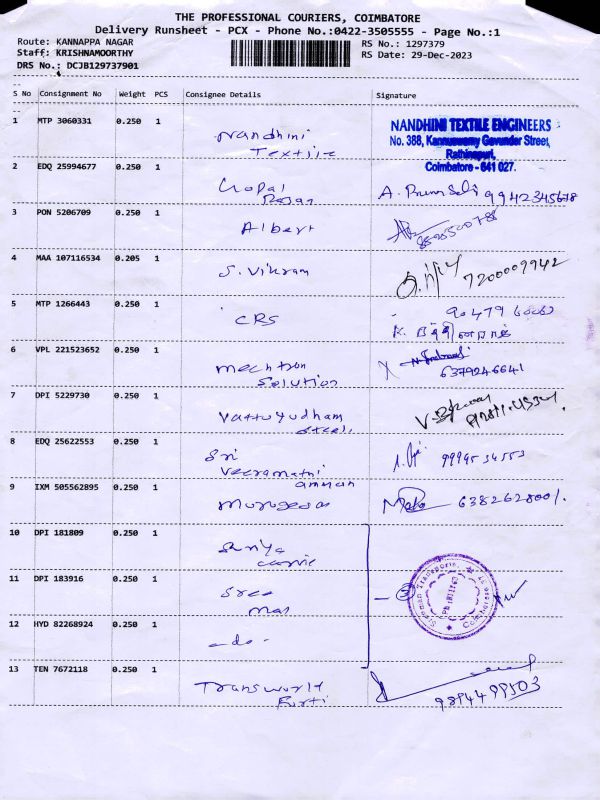 THE PROFESSIONAL COURIERS, COIMBATORE
Delivery Runsheet - PCX - Phone No.:0422-3505555 - Page No.:1
Route: KANNAPPA NAGAR RS No.: 1297379
Staff: KRISHNAMOORTHY RS Date: 29-Dec-2023
DRS No.: DCJB129737901
S No Consignment No Weight PCS Consignee Details Signature
1 MTP 3060331 0.250 1 Nandhini
Textile
NANDHINI TEXTILE ENGINEERS
No. 388, Kannuswamy Gounder Street,
Rathinapuri,
Coimbatore - 641 027.
2 EDQ 25994677 0.250 1 Gopal
Rajan
A. 9942345678
3 PON 5206709 0.250 1 Albert
4 MAA 107116534 0.205 1 S. Vikram 7200009942
5 MTP 1266443 0.250 1 CRS
6 VPL 221523652 0.250 1 Mechtron
Solution
6379246641
7 DPI 5229730 0.250 1 Vattuyudham
8 EDQ 25622553 0.250 1 Sri
Veeramathi
amman
9994534553
9 IXM 505562895 0.250 1 Murugesan 6382628001.
10 DPI 181809 0.250 1
11 DPI 183916 0.250 1 Sree
3
12 HYD 82268924 0.250 1 -do-
13 TEN 7672118 0.250 1 Transworld
9894499503